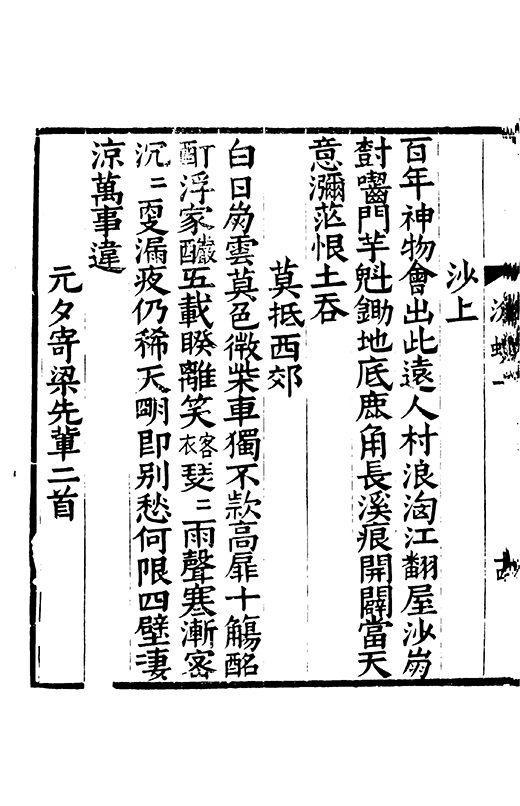 沙上
百年神物會出此遠人村浪洶江翻屋沙崩
尌齧門芋魁鋤地底鹿角長溪痕開闢當天
意瀰茫恨土吞
莫抵西郊
白日崩雲莫色微柴車獨不款高扉十觴酩
酊浮家釀五載睽離笑客衣瑟二雨聲寒漸密
沉二更漏夜仍稀天明即别愁何限四壁淒
涼萬事違
元夕寄梁先輩二首